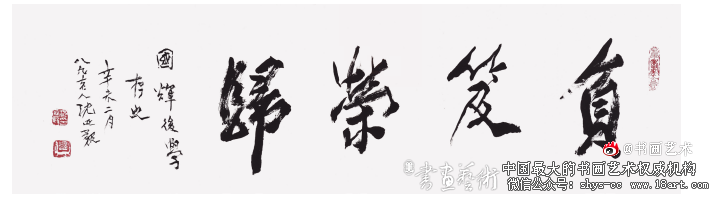 負笈榮歸
國輝後學
存念
辛未二月
八十六叟沈延毅
@书画艺术
書畫藝術
中国最大的书画艺术权威机构
微信公众号：shys-cc www.18art.com